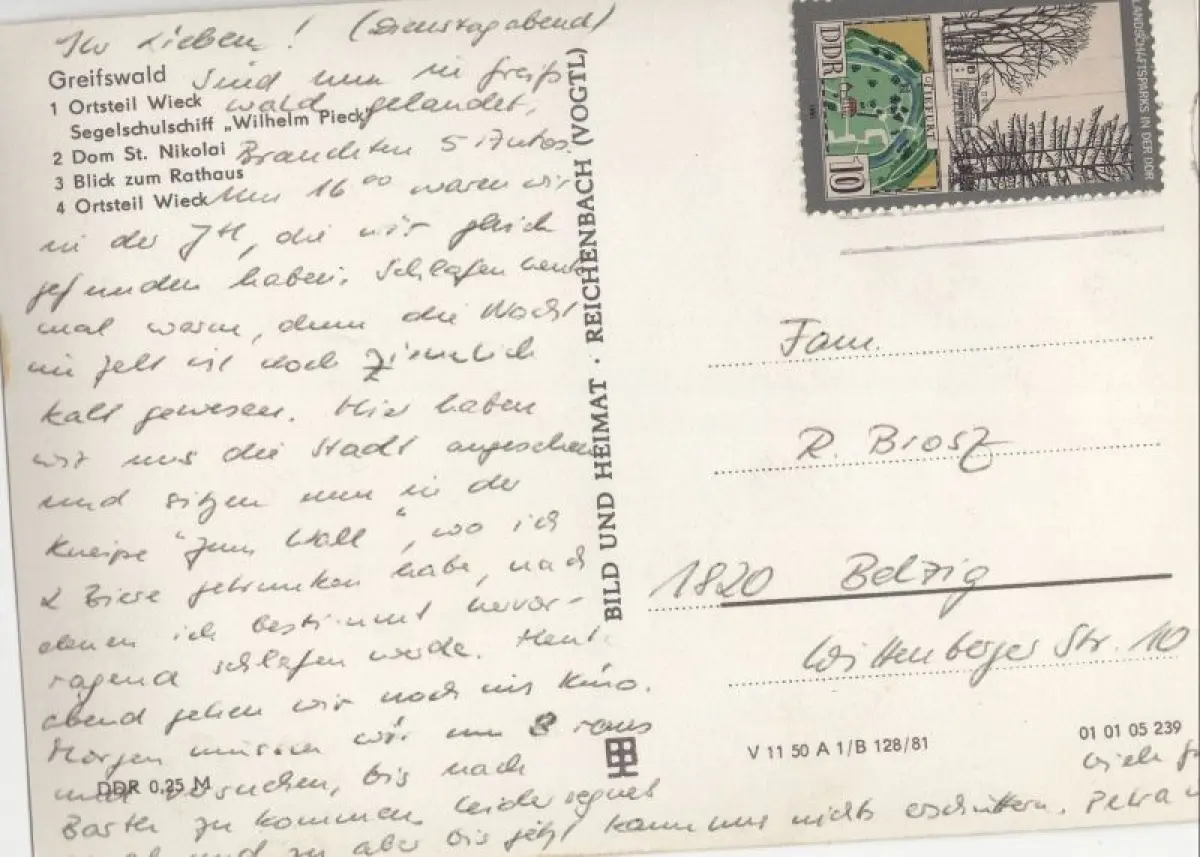 Ihr Lieben! (Dienstagabend)
Greifswald
1 Ortsteil Wieck
Segelschulschiff „Wilhelm Pieck“
2 Dom St. Nikolai
3 Blick zum Rathaus
4 Ortsteil Wieck
Sind nun in Greifs
wald gelandet,
Brauchten 5 Autos.
Um 16 00 waren wir
in der JH, die wir gleich
gefunden haben. Schlafen heute
mal warm, denn die Nacht
im Zelt ist doch ziemlich
kalt gewesen. Hier haben
wir uns die Stadt angesehen
und sitzen nun in der
Kneipe "Zum Wall", wo ich
2 Biere getrunken habe, nach
denen ich bestimmt hervor-
ragend schlafen werde. Heut
abend gehen wir noch ins Kino.
Morgen müssen wir um 8 raus
und versuchen, bis nach
DDR 0,25 M
Barth zu kommen. Leider regnet
ab und zu aber bis jetzt kann uns nichts erschüttern. Petra u
Viele
BILD UND HEIMAT · REICHENBACH (VOGTL)
DDR
TIEFURT
10
LANDSCHAFTSPARKS IN DER DDR
Fam.
R. Brosz
1820 Belzig
Wittenberger Str. 10
V 11 50 A 1/B 128/81
01 01 05 239